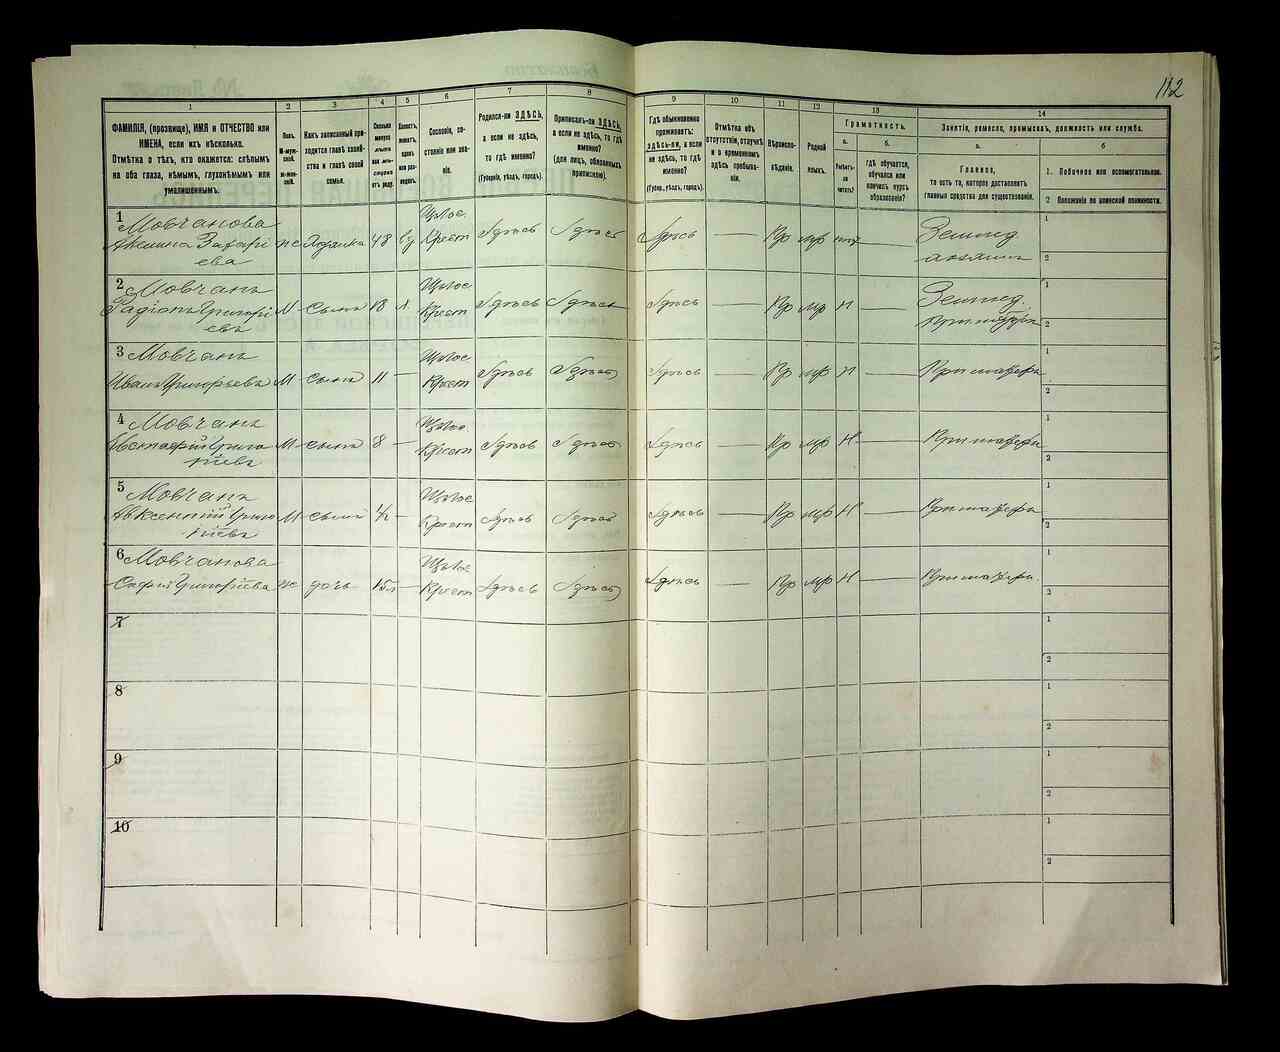 112
1 2 3 4 5 6 7 8 9 10 11 12 13 14
ФАМИЛІЯ, (прозвище), ИМЯ и ОТЧЕСТВО или
ИМЕНА, если ихъ нѣсколько.
Отмѣтка о тѣхъ, кто окажется: слѣпымъ
на оба глаза, нѣмымъ, глухонѣмымъ или
умалишеннымъ.
Полъ.
М-муж-
ской.
Ж-жен-
скій.
Какъ записанный при-
ходится главѣ хозяй-
ства и главѣ своей
семьи.
Сколько
минуло
лѣтъ
или мѣ-
сяцевъ
отъ роду.
Холостъ,
женатъ,
вдовъ
или раз-
веденъ.
Сословіе, со-
стояніе или зва-
ніе.
Родился-ли ЗДѢСЬ,
а если не здѣсь,
то гдѣ именно?
(Губернія, уѣздъ, городъ).
Приписанъ-ли ЗДѢСЬ,
а если не здѣсь, то гдѣ
именно?
(для лицъ, обязанныхъ
припискою).
Гдѣ обыкновенно
проживаетъ:
ЗДѢСЬ-ли, а если
не здѣсь, то гдѣ
именно?
(Губерн., уѣздъ, городъ).
Отмѣтка объ
отсутствіи, отлучкѣ
и о временномъ
здѣсь пребыва-
ніи.
Вѣроиспо-
вѣданіе.
Родной
языкъ.
Грамотность.
а.
Умѣетъ-
ли
читать?
б.
гдѣ обучается,
обучался или
кончилъ курсъ
образованія?
Занятіе, ремесло, промыселъ, должность или служба.
а.
Главное,
то есть то, которое доставляетъ
главныя средства для существованія.
б
1. Побочное или вспомогательное.
2 Положеніе по воинской повинности.
1 Мовчанова ж Хозяйка 48 вд Крест Здѣсь Здѣсь Здѣсь — Пр мр — Землед
ева 1 2
2 Мовчанъ М сынъ 18 х. Крест Здѣсь Здѣсь Здѣсь — Пр мр н — Землед. 1 2
3 Мовчанъ
Иванъ Григорьевъ М сынъ 11 — Крест Здѣсь Здѣсь Здѣсь — Пр мр н — При матери 1 2
4 Мовчанъ
Евстафій Григо
ріевъ М сынъ 8 — Крест Здѣсь Здѣсь Здѣсь — Пр мр н — При матери 1 2
5 Мовчанъ
Авксентій Григо
ріевъ М сынъ Крест Здѣсь Здѣсь Здѣсь — Пр мр н — При матери 1 2
6 Мовчанова
Григоріева ж дочь Крест Здѣсь Здѣсь Здѣсь — Пр мр н — При матери 1 2
7 1 2
8 1 2
9 1 2
10 1 2